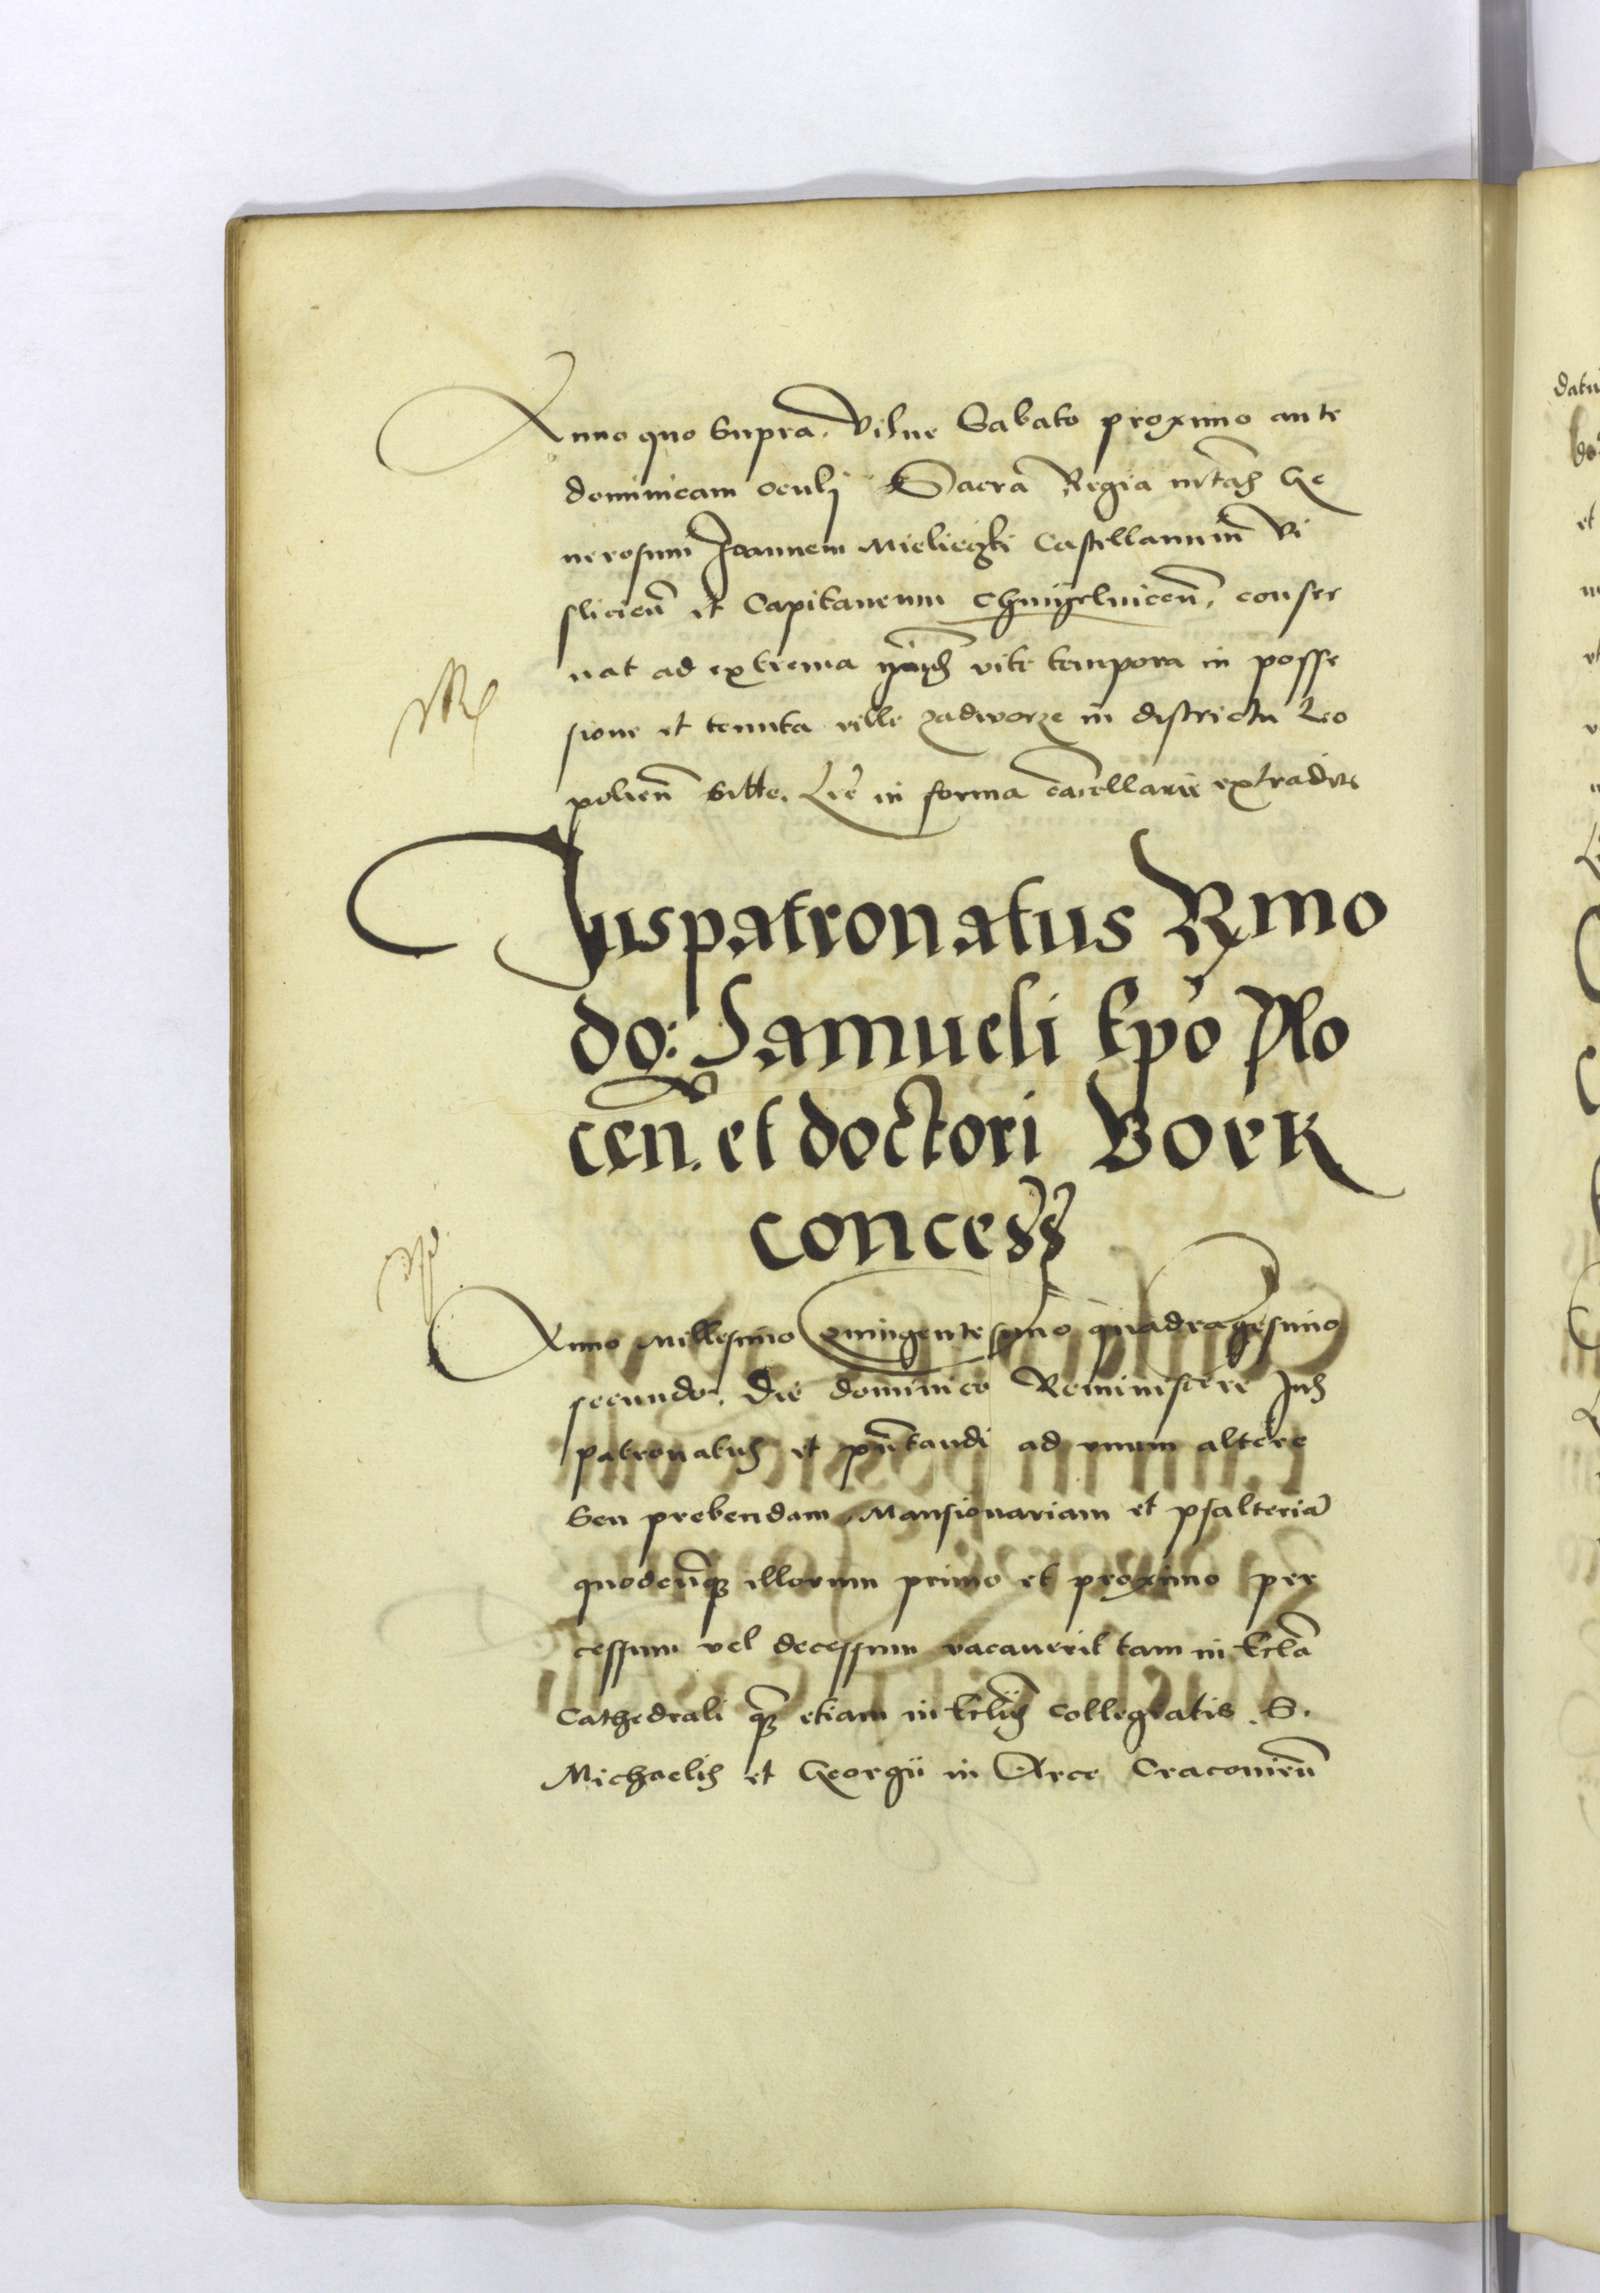 Anno quo supra. Vilne Sabato proximo ante
dominicam oculj Sacra Regia mtas Ge
nerosum Joannem Mieliczki Castellanum Vi
slicien et Capitaneum Chmyelnicen, conser
uat ad extrema vite tempora in posse
sione et tenuta ville zadworze in districtu Leo
polien site. Lre in forma cancellarie extradite
Juspatronatus Rmo
do: Samueli Epo Plo
cen. et doctori Boek
concess
Anno Millesimo Quingentesimo quadragesimo
secundo. Die dominico Reminiscere Jus
patronatus et pntandi ad vnum altare
Seu prebendam, Mansionariam et psalteria
quodcunque illorum primo et proximo per
cessum vel decessum vacauerit tam in Eccla
Cathedrali quam etiam in Ecclijs Collegiatis. S.
Michaelis et Georgii in Arce Cracouien